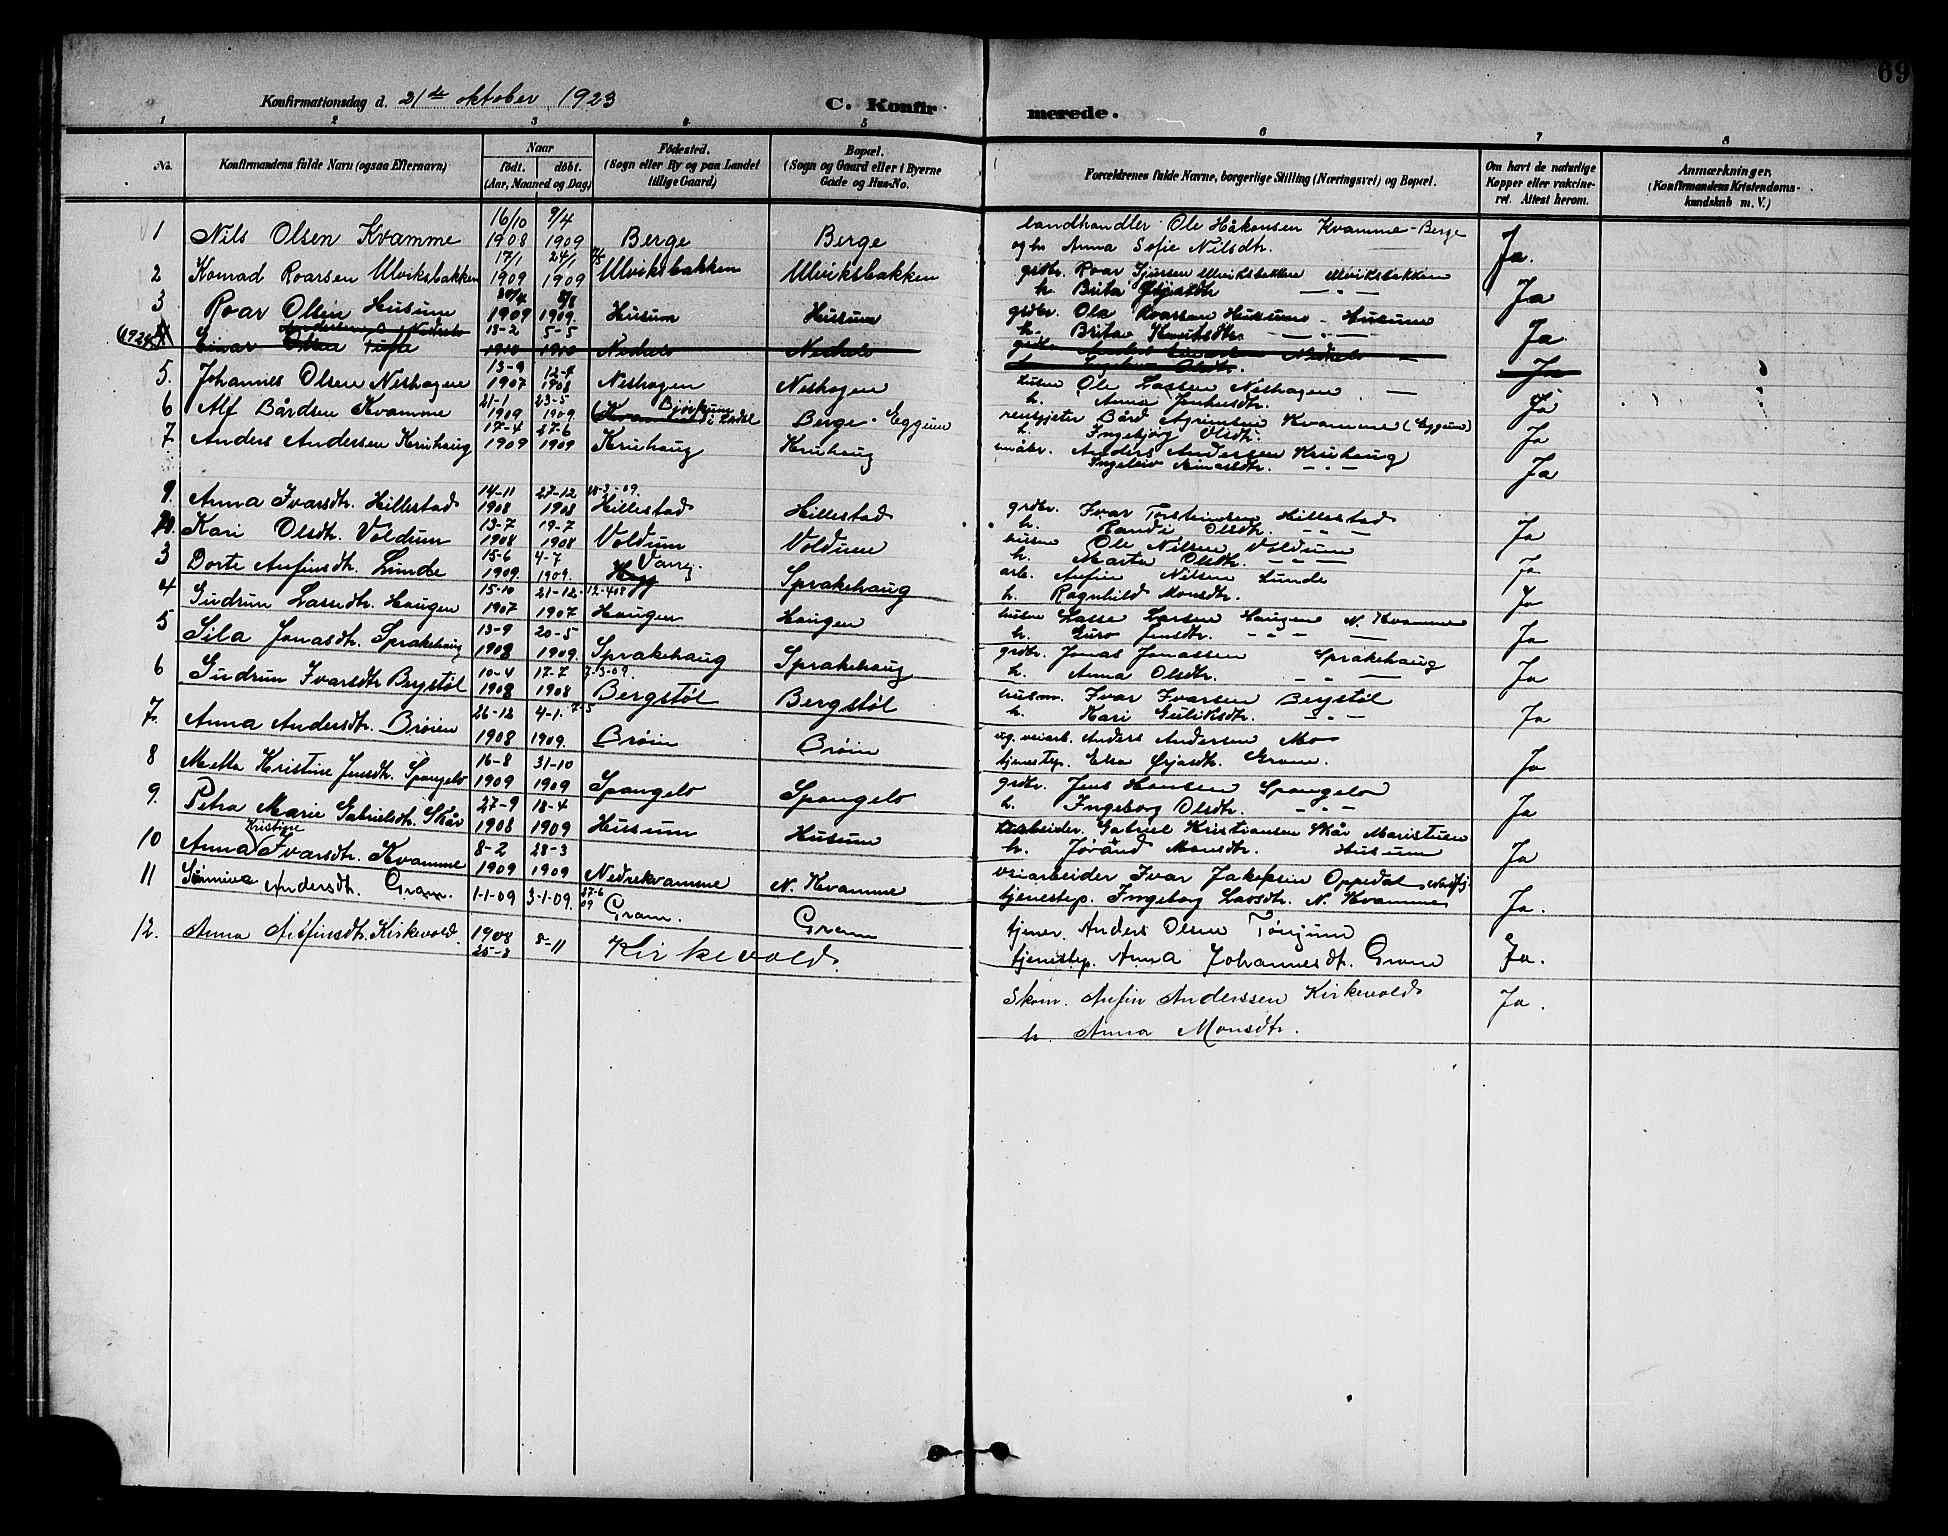 69
Konfirmationsdag d. 21de oktober 1923
C. Konfirmerede.
1 2 3 4 5 6 7 8
No.
Konfirmandens fulde Navn (ogsaa Efternavn)
Naar
født. døbt.
(Aar, Maaned og Dag)
Fødested.
(Sogn eller By og paa Landet
tillige Gaard)
Bopæl.
(Sogn og Gaard eller i Byerne
Gade og Hus-No.
Forældrenes fulde Navne, borgerlige Stilling (Næringsvei) og Bopæl.
Om havt de naturlige
Kopper eller vakcine-
ret. Attest herom.
Anmærkninger.
(Konfirmandens Kristendoms-
kundskab m. V.)
1 Nils Olsen Kvamme 16/10 1908 9/4 1909 Berge Berge landhandler Ole Håkonsen Kvamme - Berge Ja.
og h. Anna Sofie Nilsdtr.
2 Konrad Roarsen Ulviksbakken 17/1 1909 24/1 1909 Ulviksbakken Ulviksbakken grdbr. Roar Sjursen Ulviksbakken Ulviksbakken Ja
h. Brita
3 Roar Olsen Husum 30/4 1909 8/8 1909. Husum Husum grdbr. Ola Roarsen Husum - Husum Ja.
h. Brita Knutsdtr.
(1924) 4 Einar Olsen Tufa Andersen Nedrelo 13-2 1910 5-5 1910 Nedrelo Nedrelo grdbr. Nedrelo Ja
h. Ingeborg Olsdtr.
5. Johannes Olsen Neshagen 13-9 1907 12-4 1908 Neshagen Neshagen husm. Ole Lassen Neshagen Ja
h. Anna Jonhusdtr.
6 Alf Bårdsen Kvamme 21-1 1909 23-5 1909 Bjørkum i Lærdal Berge - Eggum rensgjeter Bård Agrimsen Kvamme (Eggum) Ja
h. Ingebjørg Olsdtr.
7 Anders Andersen Kruhaug 17-4 1909 27-6 1909 Kruhaug Kruhaug småbr. Anders Andersen Kruhaug Ja
Ingeleiv Einarsdtr.
1. Anna Ivarsdtr. Hillestad 14-11 1908 27-12 1908 10-3-09. Hillestad Hillestad grdbr. Ivar Torsteinsen Hillestad Ja
h. Randi Olsdtr.
2. Kari Olsdtr. Voldum 13-7 1908 19-7 1908 Voldum Voldum husm Ole Nilsen Voldum Ja
h. Marta Olsdtr.
3 Dorte Anfinsdtr. Lunde 15-6 1909. 4-7 1909. Hegg Sprakehaug arb. Anfin Nilsen Lunde Ja
h. Ragnhild Monsdtr.
4 Gudrun Lassedtr. Haugen 15-10 1907 21-12 1907 12-4 08 Haugen Haugen husm Lasse Larsen Haugen N. Kvamme Ja
h. Guro Jensdtr.
5 Sila Jonasdtr. Sprakehaug 13-9 1908 20-5 1909. Sprakehaug Sprakehaug grdbr. Jonas Jonassen Sprakehaug Ja
h. Anna Olsdtr.
6 Gudrun Ivarsdtr Bergstøl 10-4 1908 17-7 1908 7-3-09. Bergstøl Bergstøl husm. Ivar Ivarsen Bergstøl Ja
h. Kari Guliksdtr.
7. Anna Andersdtr. Brøien 26-12 1908 4-1. 1909. 7-5 Brøin Brøin ug. veiarb. Anders Andersen Mo Ja
tjenestep. Elsa Gram.
8 Metta Kristine Jensdtr. Spangelo 16-8 1909 31-10 1909 Spangelo Spangelo grdbr. Jens Hansen Spangelo Ja
h. Ingeborg Olsdtr.
9. Petra Marie Gabrielsdtr. Skår 27-9 1908 18-4 1909 Husum Husum arbeider. Gabriel Kristiansen Skår Maristuen Ja
h. Jørånd Monsdtr. Husum
10 Anna Kristine Ivarsdtr. Kvamme 8-2 1909 28-3 1909 Nedrekvamme N. Kvamme veiarbeider Ivar Jakobsen Oppedal, Nordfj. Ja.
tjenestep. Ingeborg Larsdtr. N. Kvamme
11 Sønneva Andersdtr. Gram. 1-1-09 3-1-09. 27-6 09 Gram. Gram tjener. Anders Olsen Tønjum Ja.
tjenestep. Anna Johannesdtr. Gram
12. Anna Anfinsdtr. Kirkevold. 1908 25-8 8-11 Kirkevold. Skom. Anfin Anderssen Kirkevold Ja.
h. Anna Monsdtr.